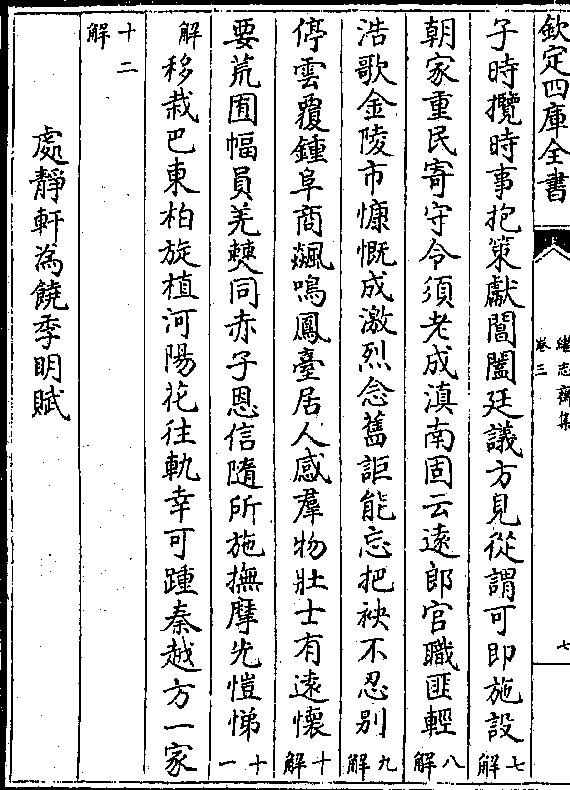 欽定四庫全書
繼志齋集
卷三
七
子時攬時事抱策獻閶闔廷議方見從謂可即施設七解
朝家重民寄守令須老成滇南固云遠郎官職匪輕八解
浩歌金陵市慷慨成激烈念舊詎能忘把袂不忍别九解
停雲覆鍾阜商飈鳴鳳臺居人感羣物壯士有遠懷十解
要荒囿幅員羌僰同赤子恩信隨所施撫摩先愷悌十一
解移栽巴東柏旋植河陽花往軌幸可踵秦越方一家
十二解
處靜軒為饒季明賦